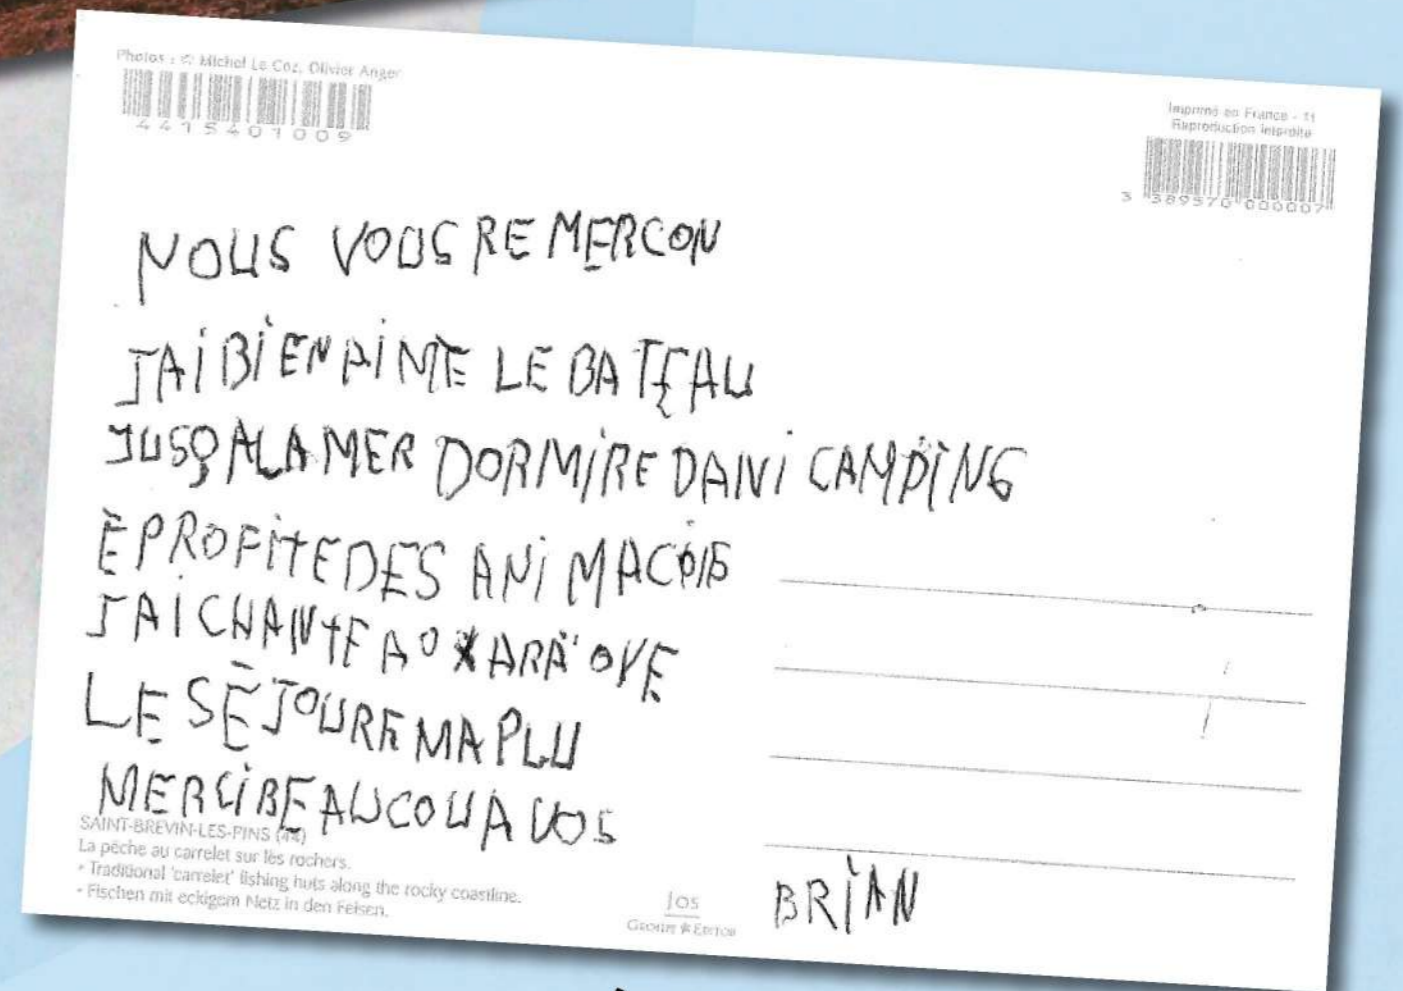 Photos : © Michel Le Coz, Olivier Anger
4415401009
Imprimé en France - 11
Reproduction interdite
3 389570 000007
NOUS VOUS RE MERCON
JAI BIEN AIME LE BATEAU
JUSQ A LA MER DORMIRE DANI CAMPING
E PROFITE DES ANIMACOIS
JAI CHANTE AO KARAOYE
LE SÉJOURE MA PLU
MERCI BEAUCOU A VOS
SAINT-BREVIN-LES-PINS (44)
La pêche au carrelet sur les rochers.
- Traditional 'carrelet' fishing huts along the rocky coastline.
- Fischen mit eckigem Netz in den Felsen.
JOS
GROUPE EDITOR
BRIAN